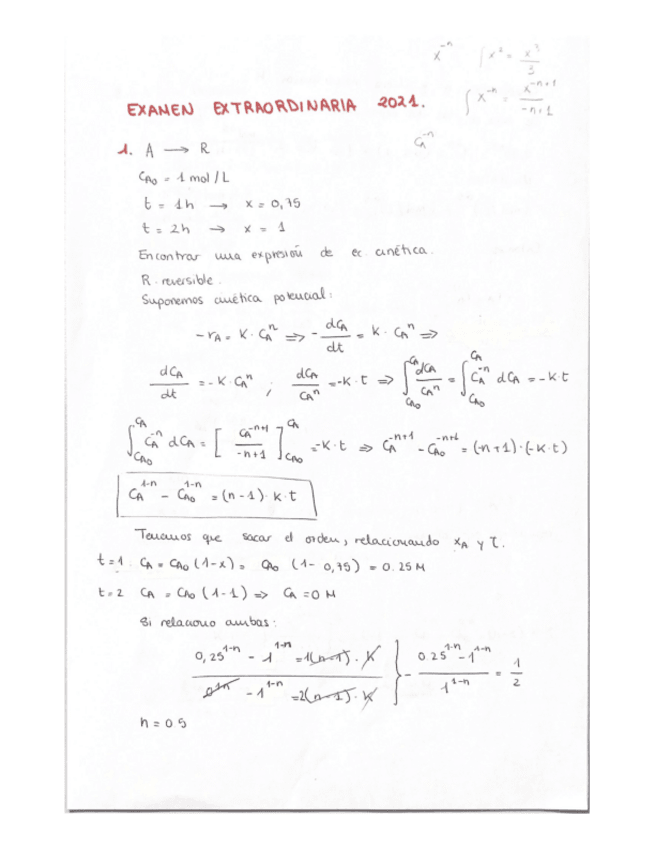 x^-n   ∫x² = x³/3
∫x^-n = x^-n+1/-n+1
EXAMEN EXTRAORDINARIA 2021.
C_A^-n
1. A → R
C_A0 = 1 mol/L
t = 1h → x = 0,75
t = 2h → x = 1
Encontrar una expresión de ec. cinética.
R. reversible.
Suponemos cinética potencial:
-r_A = K · C_A^n ⇒ - dC_A/dt = K · C_A^n ⇒
dC_A/dt = -K · C_A^n ; dC_A/C_A^n = -K · t ⇒ ∫_CA0^CA dC_A/C_A^n = ∫_CA0^CA C_A^-n dC_A = -K · t
∫_CA0^CA C_A^-n dC_A = [C_A^-n+1/-n+1]_CA0^CA = -K · t ⇒ C_A^-n+1 - C_A0^-n+1 = (-n+1) · (-K · t)
C_A^1-n - C_A0^1-n = (n-1) · K · t
Tenemos que sacar el orden, relacionando x_A y t.
t=1. C_A = C_A0 (1-x) = C_A0 (1- 0,75) = 0.25 M
t=2 C_A = C_A0 (1-1) ⇒ C_A = 0 M
Si relaciono ambas:
0,25^1-n - 1^1-n = 1(n-1) · K
0^1-n - 1^1-n = 2(n-1) · K } - 0.25^1-n - 1^1-n/1^1-n = 1/2
n = 0.5